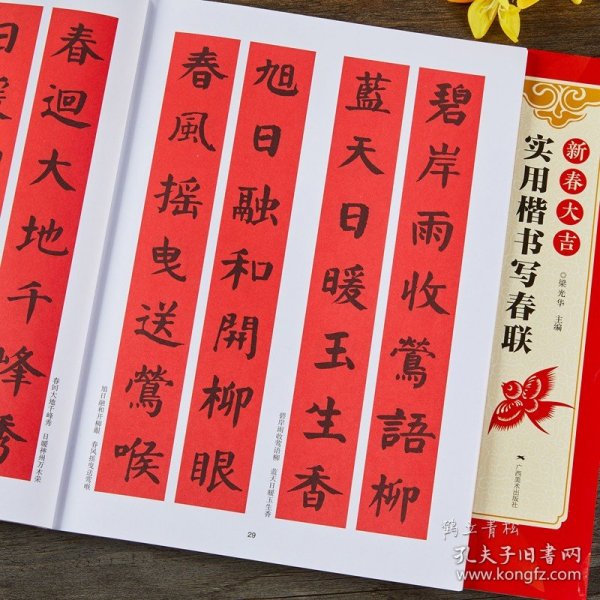 碧岸雨收鶯語柳
藍天日暖玉生香
碧岸雨收莺语柳 蓝天日暖玉生香
旭日融和開柳眼
春風摇曳送鶯喉
旭日融和开柳眼 春风摇曳送莺喉
春迴大地千峰秀
春回大地千峰秀 日暖神州万木荣
29
新春大吉
实用楷书写春联
◎梁光华 主编
广西美术出版社
鹤立青松
孔夫子旧书网
www.kongfz.com